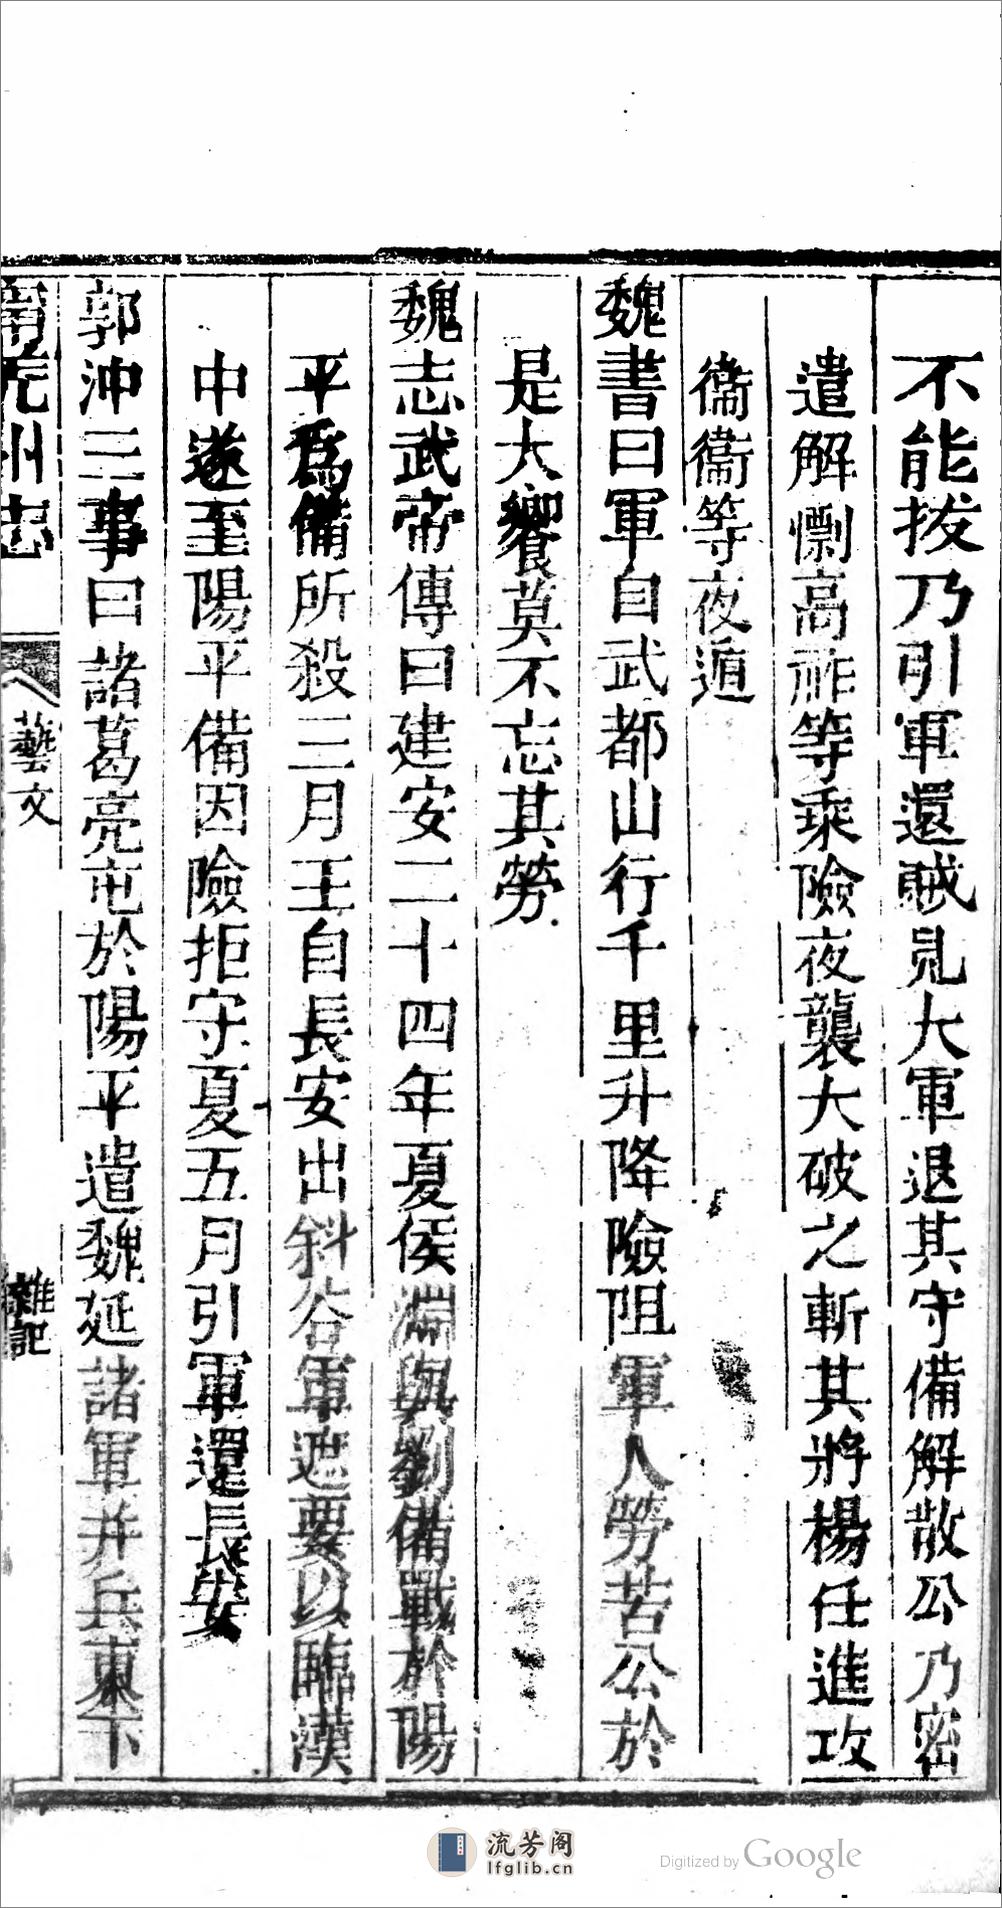 不能拔乃引軍還賊見大軍退其守備解散公乃密
遣解𢢼高祚等乘險夜襲大破之斬其將楊任進攻
衞衞等夜遁
魏書曰軍自武都山行千里升降險阻軍人勞苦公於
是大饗莫不忘其勞
魏志武帝傳曰建安二十四年夏侯淵與劉備戰於陽
平爲備所殺三月王自長安出斜谷軍遮要以臨漢
中遂至陽平備因險拒守夏五月引軍還長安
郭沖三事曰諸葛亮屯於陽平遣魏延諸軍并兵東下
甯羌州志
藝文
雜記
流芳阁
lfglib.cn
Digitized by Google